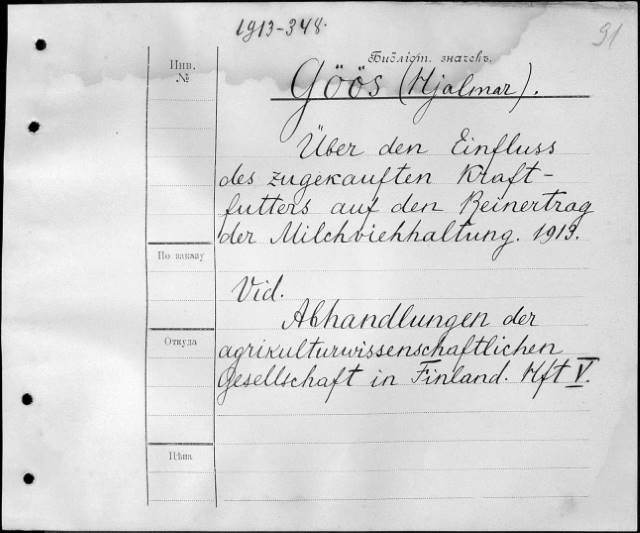 1913-348.
91
Библіот. значекъ.
Инв.
№
Göös (Hjalmar).
Über den Einfluss
des zugekauften Kraft-
futters auf den Reinertrag
der Milchviehhaltung. 1913.
По заказу
Vid.
Abhandlungen der
Откуда
agrikulturwissenschaftlichen
Gesellschaft in Finland. Hft V.
Цѣна